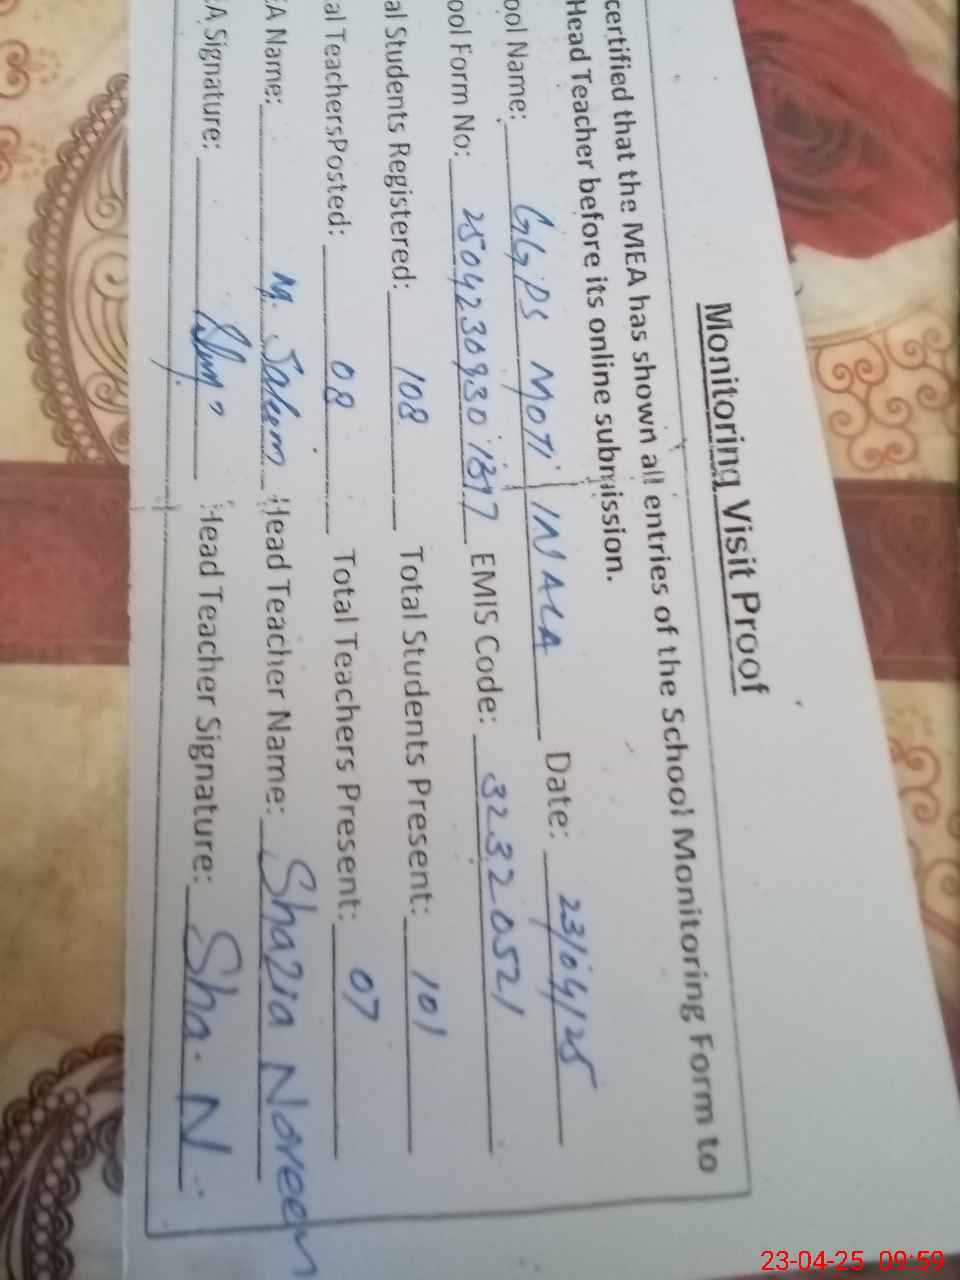 Monitoring Visit Proof
certified that the MEA has shown all entries of the School Monitoring Form to
Head Teacher before its online submission.
ool Name: GGPS MOTI INALA Date: 23/04/25
ool Form No: EMIS Code: 32320521
al Students Registered: 108 Total Students Present: 101
al TeachersPosted: 08 Total Teachers Present: 07
EA Name: M. Saleem Head Teacher Name: Shazia Noreen
EA Signature: Head Teacher Signature: Sha. N.
23-04-25 09:59